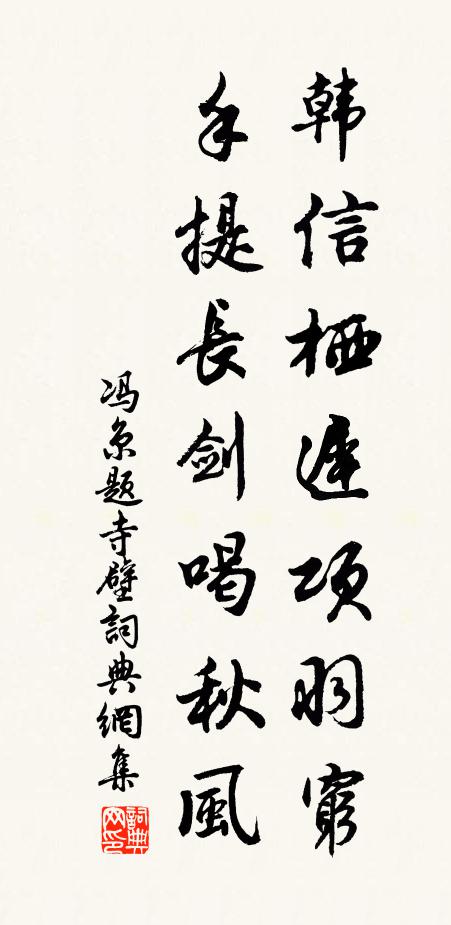 韩信栖遲项羽窮
手提長劍喝秋風
冯京题寺壁詞典網集
詞典网印